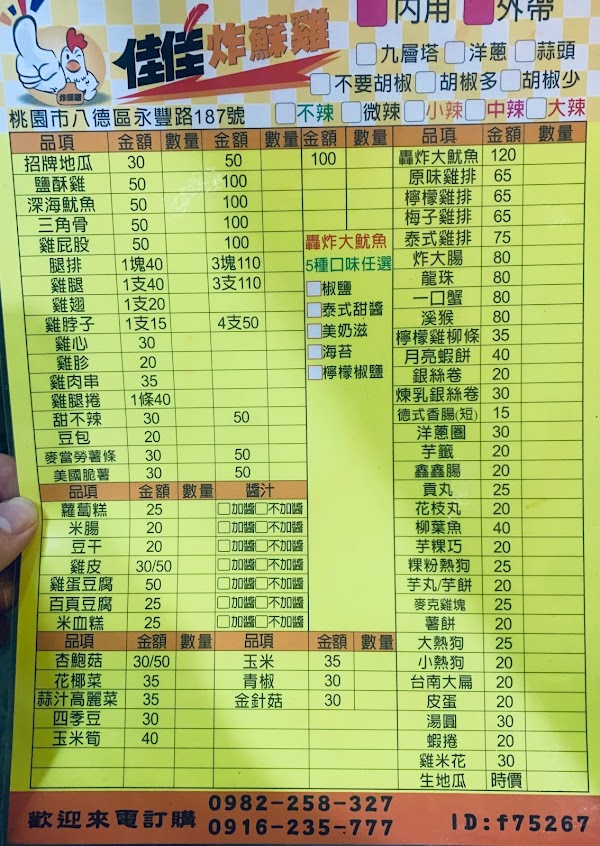 內用 外帶
佳佳炸蘇雞
炸蘇雞
九層塔 洋蔥 蒜頭
不要胡椒 胡椒多 胡椒少
桃園市八德區永豐路187號
不辣 微辣 小辣 中辣 大辣
品項 金額 數量 金額 數量 金額 數量
招牌地瓜 30 50 100
鹽酥雞 50 100
深海魷魚 50 100
三角骨 50 100
雞屁股 50 100
腿排 1塊40 3塊110
雞腿 1支40 3支110
雞翅 1支20
雞脖子 1支15 4支50
雞心 30
雞胗 20
雞肉串 35
雞腿捲 1條40
甜不辣 30 50
豆包 20
麥當勞薯條 30 50
美國脆薯 30 50
轟炸大魷魚
5種口味任選
椒鹽
泰式甜醬
美奶滋
海苔
檸檬椒鹽
品項 金額 數量 醬汁
蘿蔔糕 25 加醬 不加醬
米腸 20 加醬 不加醬
豆干 20 加醬 不加醬
雞皮 30/50 加醬 不加醬
雞蛋豆腐 50 加醬 不加醬
百頁豆腐 25 加醬 不加醬
米血糕 25 加醬 不加醬
品項 金額 數量 品項 金額 數量
杏鮑菇 30/50 玉米 35
花椰菜 35 青椒 30
蒜汁高麗菜 35 金針菇 30
四季豆 30
玉米筍 40
品項 金額 數量
轟炸大魷魚 120
原味雞排 65
檸檬雞排 65
梅子雞排 65
泰式雞排 75
炸大腸 80
龍珠 80
一口蟹 80
溪猴 80
檸檬雞柳條 35
月亮蝦餅 40
銀絲卷 20
煉乳銀絲卷 30
德式香腸(短) 15
洋蔥圈 30
芋籤 20
鑫鑫腸 20
貢丸 25
花枝丸 20
柳葉魚 40
芋粿巧 20
粿粉熱狗 25
芋丸/芋餅 20
麥克雞塊 25
薯餅 20
大熱狗 25
小熱狗 20
台南大扁 20
皮蛋 20
湯圓 30
蝦捲 20
雞米花 30
生地瓜 時價
歡迎來電訂購
0982-258-327
0916-235-777
ID:f75267